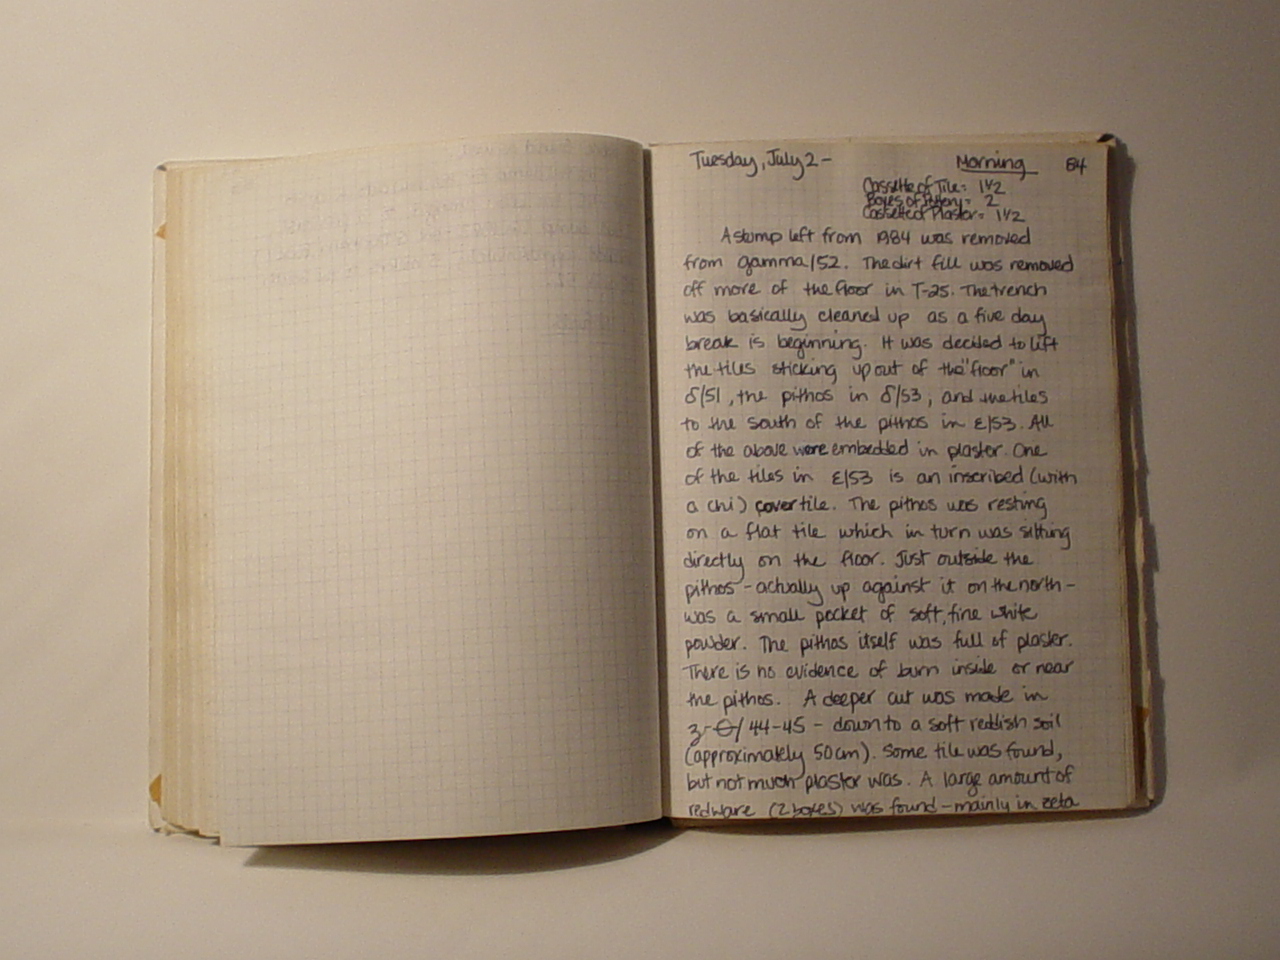 Tuesday, July 2 - Morning 84
Cassette of Tile = 1 1/2
Boxes of Pottery = 2
Cassette of Plaster = 1 1/2
A stump left from 1984 was removed
from gamma/52. The dirt fill was removed
off more of the floor in T-25. The trench
was basically cleaned up as a five day
break is beginning. It was decided to lift
the tiles sticking up out of the "floor" in
δ/51, the pithos in δ/53, and the tiles
to the south of the pithos in ε/53. All
of the above were embedded in plaster. One
of the tiles in ε/53 is an inscribed (with
a chi) cover tile. The pithos was resting
on a flat tile which in turn was sitting
directly on the floor. Just outside the
pithos - actually up against it on the north -
was a small pocket of soft, fine white
powder. The pithos itself was full of plaster.
There is no evidence of burn inside or near
the pithos. A deeper cut was made in
z-Θ/44-45 - down to a soft reddish soil
(approximately 50cm). Some tile was found,
but not much plaster was. A large amount of
redware (2 boxes) was found - mainly in zeta